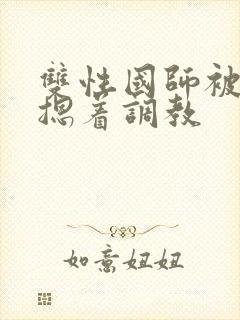 雙性國師被
摁着調教
如意妞妞